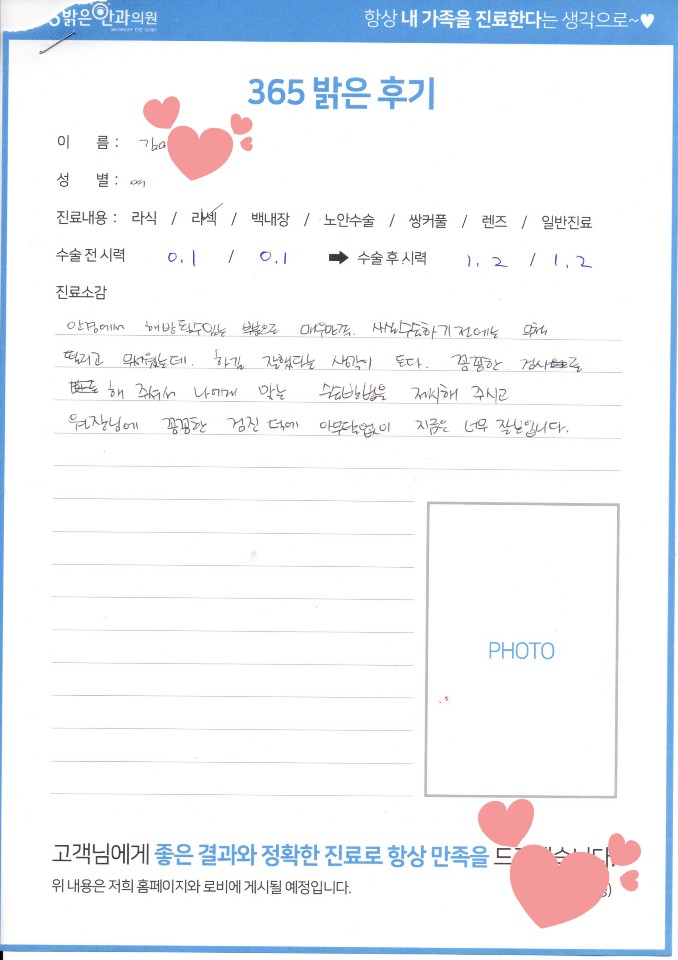 밝은안과의원
항상 내 가족을 진료한다는 생각으로~♥
365 밝은 후기
이 름 :
성 별 : 여
진료내용 : 라식 / 라섹 / 백내장 / 노안수술 / 쌍커풀 / 렌즈 / 일반진료
수술 전 시력 0.1 / 0.1 ➡ 수술 후 시력 1.2 / 1.2
진료소감
안경에서 해방될수있는 부분으로 매우만족. 사실수술하기전에는
떨리고 무서웠는데. 하길 잘했다는 생각이 든다. 꼼꼼한
해 주셔서 나에게 맞는 수술방법을 제시해 주시고
원장님에 꼼꼼한 검진 덕에 아무탈없이 지금은 너무 잘보입니다.
PHOTO
고객님에게 좋은 결과와 정확한 진료로 항상 만족을
위 내용은 저희 홈페이지와 로비에 게시될 예정입니다.